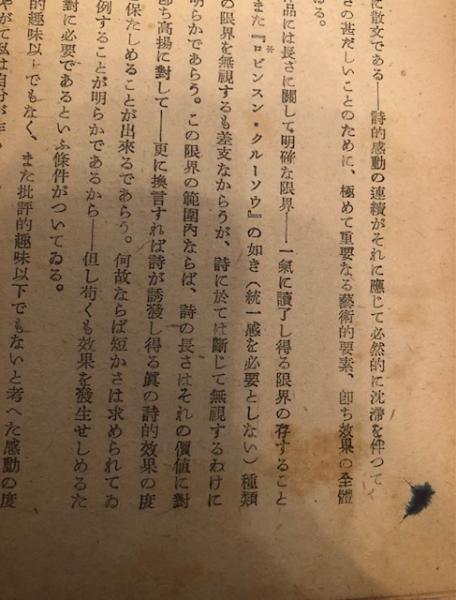 に散文である――詩的感動の連續がそれに應じて必然的に沈滯を伴つて
さの甚だしいことのために、極めて重要なる藝術的要素、卽ち效果の全體
る。
品には長さに關して明確な限界――一氣に讀了し得る限界の存すること
また『ロビンスン・クルーソウ』の如き（統一感を必要としない）種類
の限界を無視するも差支なからうが、詩に於ては斷じて無視するわけに
明らかであらう。この限界の範圍內ならば、詩の長さはそれの價値に對
卽ち高揚に對して――更に換言すれば詩が誘發し得る眞の詩的效果の度
保たしめることが出來るであらう。何故ならば短かさは求められてゐ
例することが明らかであるから――但し苟くも效果を發生せしめるた
對に必要であるといふ條件がついてゐる。
的趣味以上でもなく、また批評的趣味以下でもないと考へた感動の度
やがて私は自分が